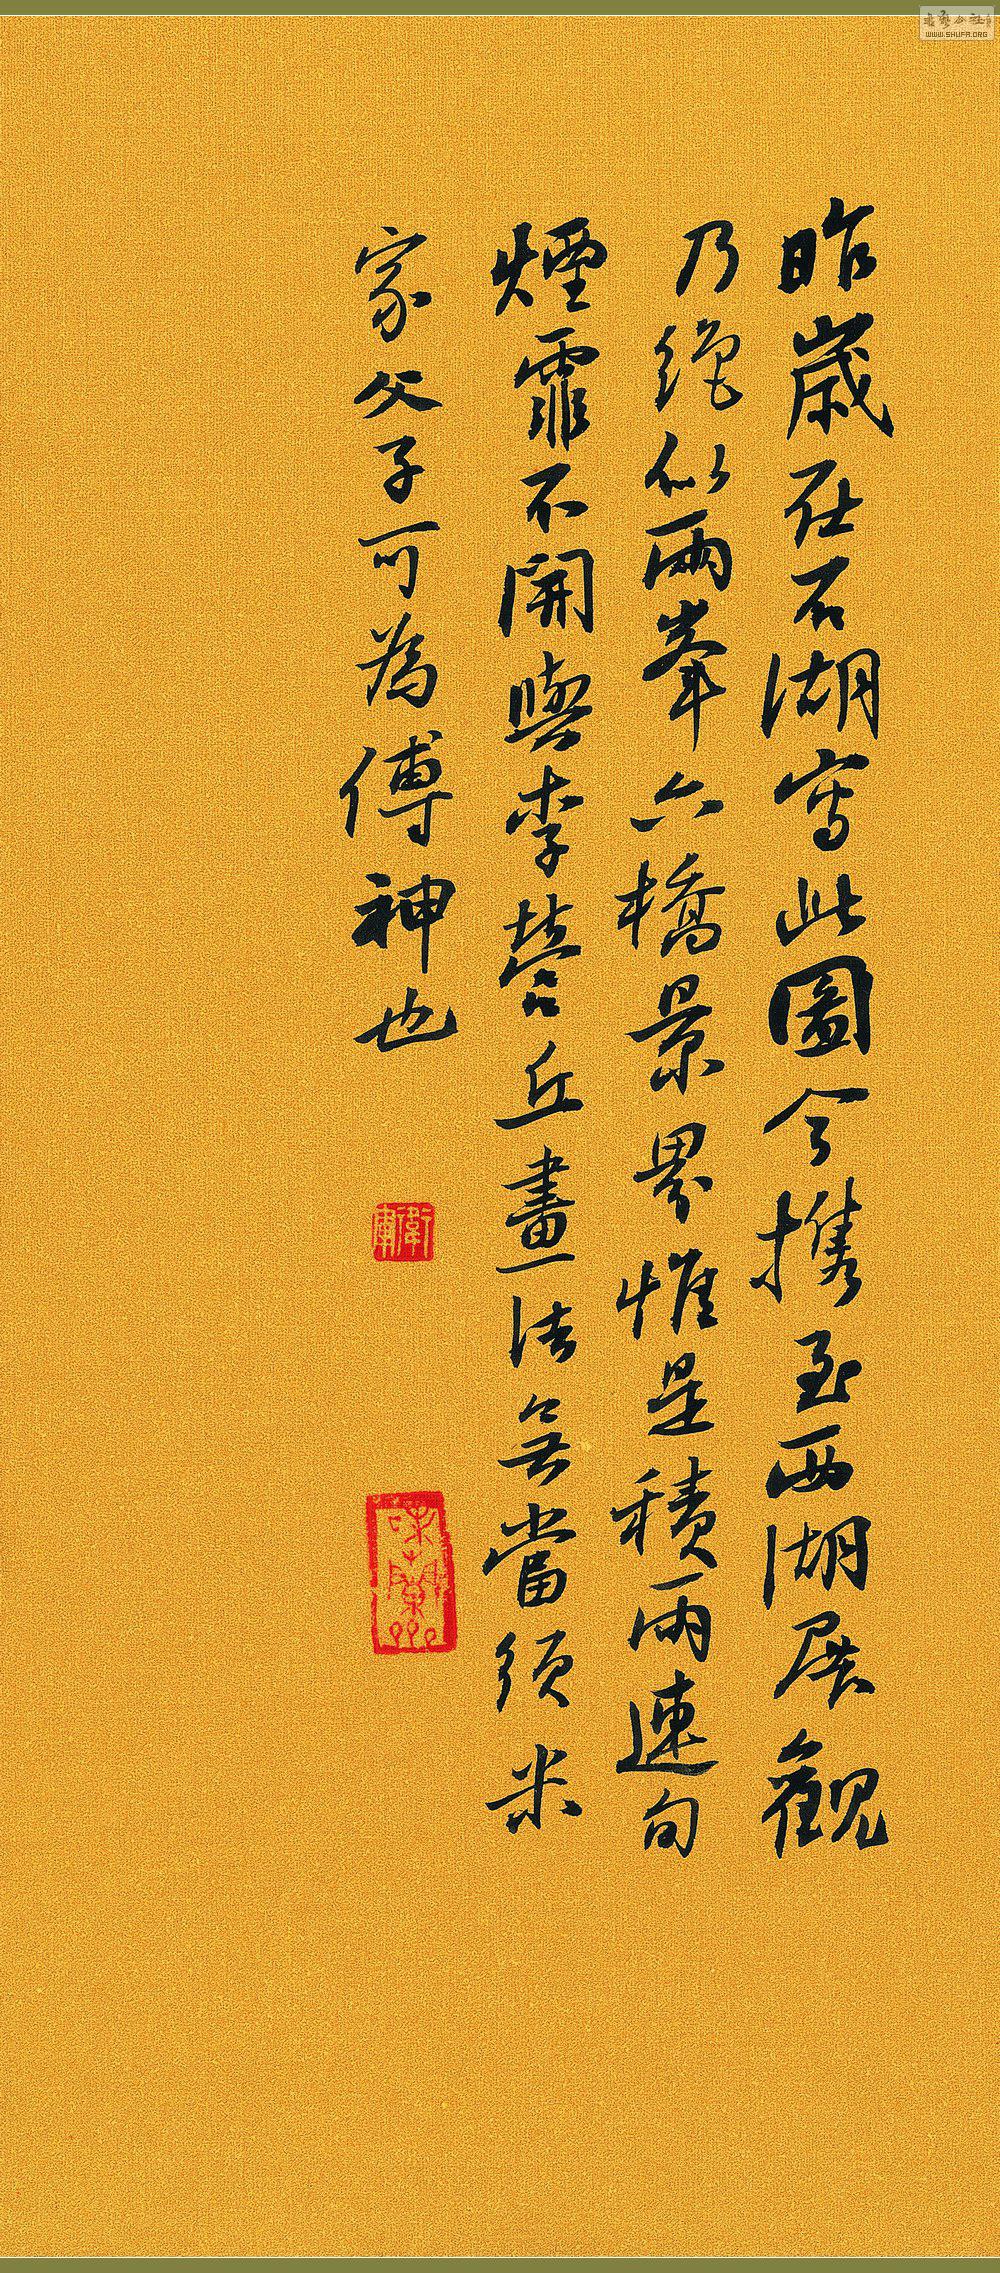 昨歲在石湖寫此圖今攜至西湖展觀
乃絕似兩峯六橋景界惟是積雨連旬
煙霏不開與李營丘畫法無當須米
家父子可為傳神也
WWW.SHUFA.ORG